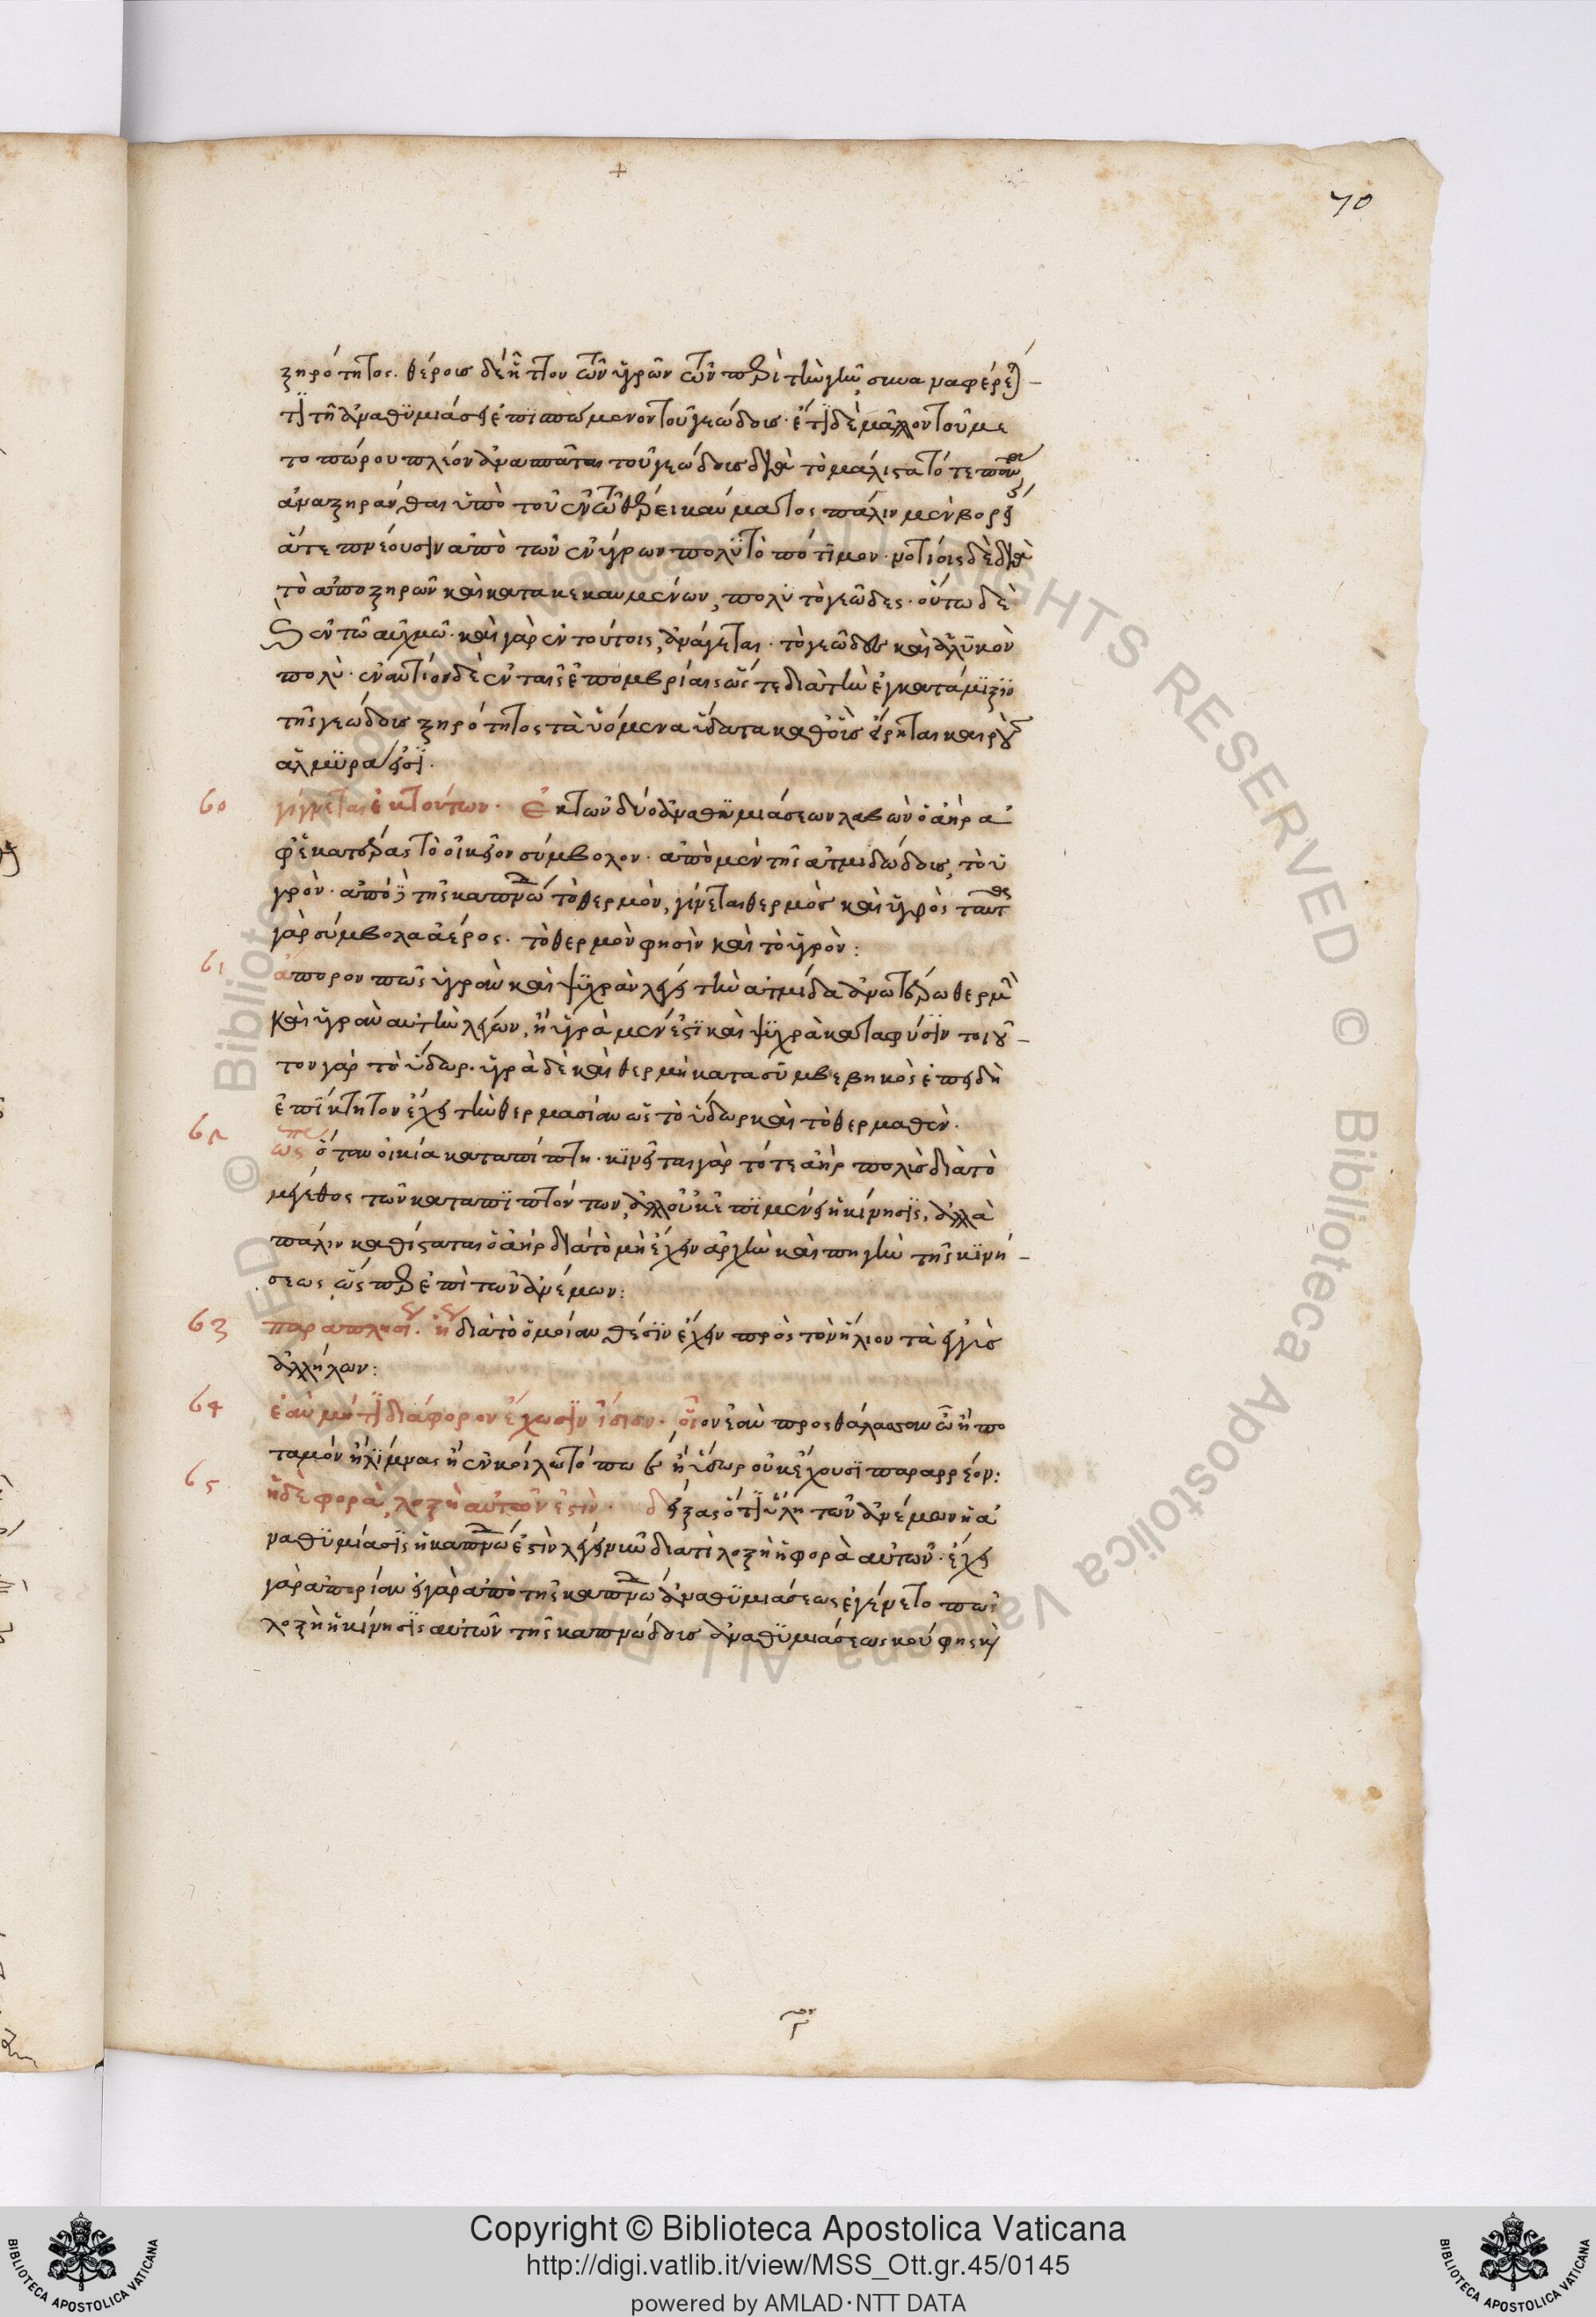 +
70
ξηρότητος. θέρους δὲ ἧττον τῶν ὑγρῶν τῶν περὶ τὴν γῆν συναναφέρε
τι τῇ ἀναθυμιάσει ἐπιπώμενον τοῦ γεώδους. ἔτι δὲ μᾶλλον τοῦ με
τοπώρου πλέον ἀναπᾶται τοῦ γεώδους διὰ τὸ μάλιστα τότε
ἀναξηραν͂θαι ὑπὸ τοῦ ἐν τῷ θέρει καύματος πάλιν μὲν βορεί
ἅτε πνέουσιν ἀπὸ τῶν ἐνύγρων πολὺ τὸ πότιμον. νοτίοις δὲ διὰ
τὸ ἀπο ξηρῶν καὶ κατακεκαυμένων, πολὺ τὸ γεῶδες. οὕτω δὲ
ἐν τῷ αὐχμῷ. καὶ γὰρ ἐν τούτοις, ἀνάγεται. τὸ γεῶδες καὶ ἁλυκὸν
πολὺ. ἐναντίον δὲ ἐν ταῖς ἐπομβρίαις ὥστε διὰ τὴν ἐγκατάμιξιν
τῆς γεώδους ξηρότητος τὰ ὑόμενα ὕδατα καθ' οὓς εἴρηται καιροὺς
ἁλμυρά ἐστι.
60 γίγνεται ἐκ τούτων. Ἐκ τῶν δύο ἀναθυμιάσεων λαβὼν ὁ ἀὴρ ἀ
φ' ἑκατέρας τὸ οἰκεῖον σύμβολον. ἀπὸ μὲν τῆς ἀτμιδώδους, τὸ ὑ
γρὸν. ἀπὸ δὲ τῆς καπνώ τὸ θερμὸν, γίνεται θερμὸς καὶ ὑγρὸς ταῦτα
γὰρ σύμβολα ἀέρος. τὸ θερμὸν φησὶν καὶ τὸ ὑγρὸν:
61 ἄπορον πῶς ὑγρὰν καὶ ψυχρὰν λέγει τὴν ἀτμίδα ἀνωτέρω θερμὴν
καὶ ὑγρὰν αὐτὴν λέγων, ἢ ὑγρὰ μέν ἐστι καὶ ψυχρὰ κατὰ φύσιν τοιοῦ
τον γὰρ τὸ ὕδωρ. ὑγρὰ δὲ καὶ θερμὴ κατα συμβεβηκὸς ἐπειδὴ
ἐπίκτητον ἔχει τὴν θερμασίαν ὡς τὸ ὕδωρ καὶ τὸ θερμαθέν.
62 ὥσπερ ὅταν οἰκία καταπίπτη. κινεῖται γὰρ τότε ἀὴρ πολὺς διὰ τὸ
μέγεθος τῶν καταπιπτόντων, ἀλλ' οὐκ ἐπιμένει ἡ κίνησις, ἀλλὰ
πάλιν καθίσταται ὁ ἀὴρ διὰ τὸ μὴ ἔχειν ἀρχὴν καὶ πηγὴν τῆς κινή
σεως, ὥσπερ ἐπὶ τῶν ἀνέμων:
63 παραπλησι. ἢ διὰ τὸ ὁμοίαν θέσιν ἔχειν πρὸς τὸν ἥλιον τὰ ἐγγὺς
ἀλλήλων:
64 ἐὰν μή τι διάφορον ἔχωσιν ἴδιον. οἷον ἐὰν προς θάλασσαν ὦ ἢ πο
ταμόν ἢ λίμνας ἢ ἐν κοίλω τόπω ἢ ὕδωρ οὐκ ἔχουσι παραρρέον:
65 ἡ δὲ φορὰ, λοξὴ αὐτῶν ἐστὶν. δείξας ὅτι ὕλη τῶν ἀνέμων ἡ ἀ
ναθυμίασις ἡ καπνώ ἐστὶν λέγει νῦν διατὶ λοξὴ ἡ φορὰ αὐτῶν. ἔχει
γὰρ ἀπορίαν εἰ γὰρ ἀπὸ τῆς καπνώ ἀναθυμιάσεως ἐγένετο πῶς
λοξὴ ἡ κίνησις αὐτῶν τῆς καπνώδους ἀναθυμιάσεως κούφης κὶ
Copyright © Biblioteca Apostolica Vaticana
http://digi.vatlib.it/view/MSS_Ott.gr.45/0145
powered by AMLAD·NTT DATA